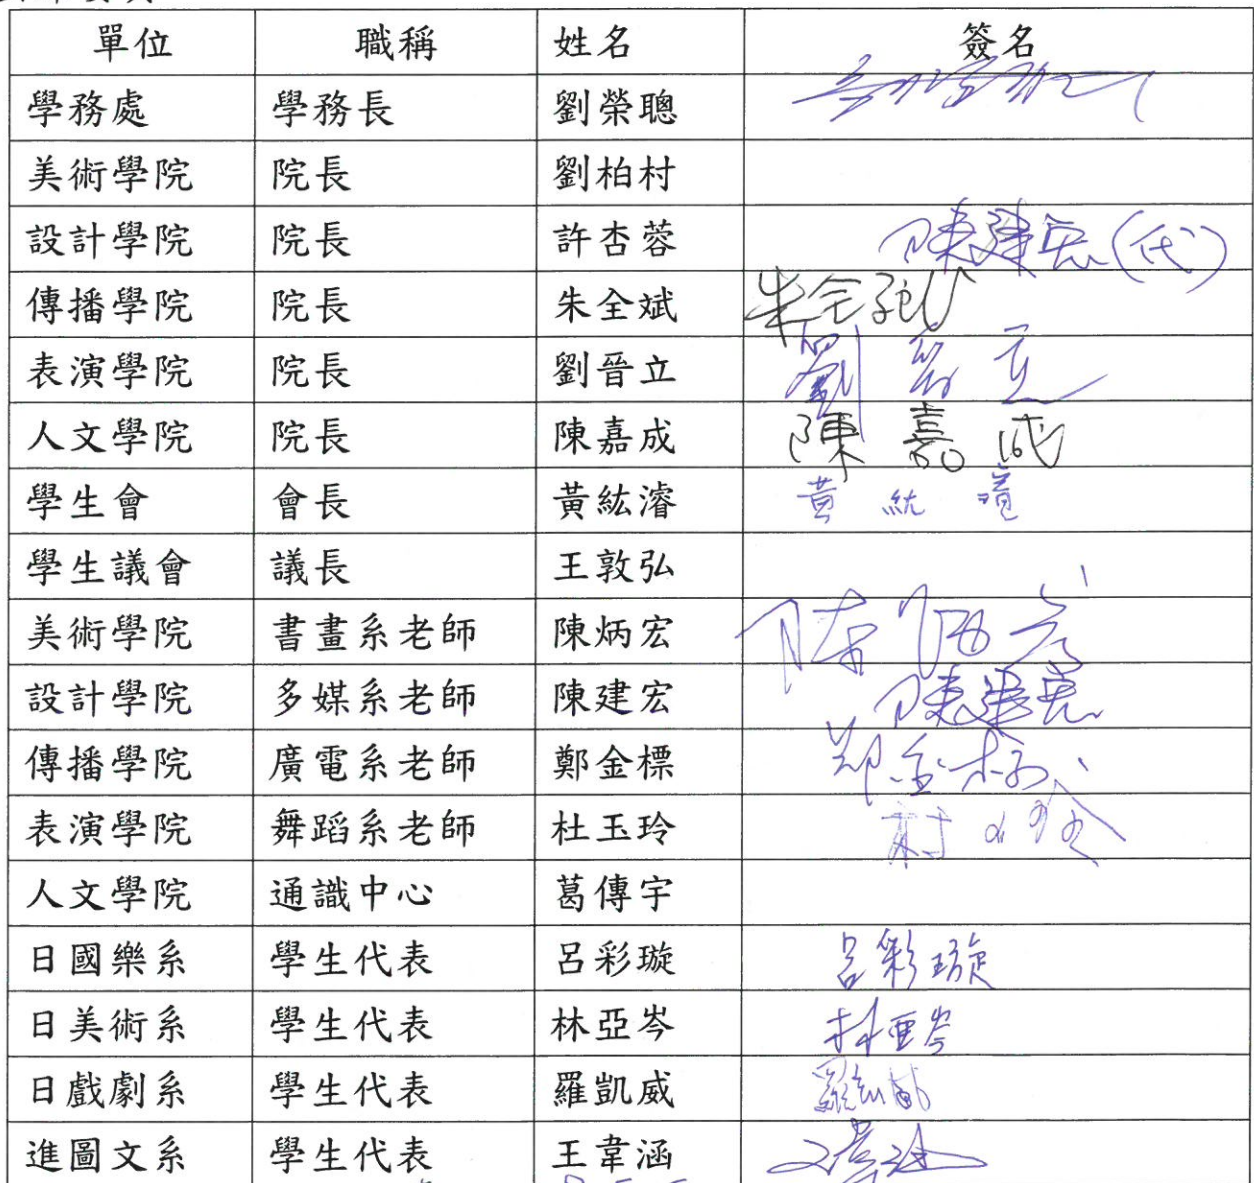 單位 職稱 姓名 簽名
學務處 學務長 劉榮聰
美術學院 院長 劉柏村
設計學院 院長 許杏蓉 陳建宏(代)
傳播學院 院長 朱全斌 朱全斌
表演學院 院長 劉晉立 劉晉立
人文學院 院長 陳嘉成 陳嘉成
學生會 會長 黃紘濬 黃紘濬
學生議會 議長 王敦弘
美術學院 書畫系老師 陳炳宏 陳炳宏
設計學院 多媒系老師 陳建宏 陳建宏
傳播學院 廣電系老師 鄭金標 鄭金標
表演學院 舞蹈系老師 杜玉玲 杜玉玲
人文學院 通識中心 葛傳宇
日國樂系 學生代表 呂彩璇 呂彩璇
日美術系 學生代表 林亞岑 林亞岑
日戲劇系 學生代表 羅凱威 羅凱威
進圖文系 學生代表 王韋涵 王韋涵